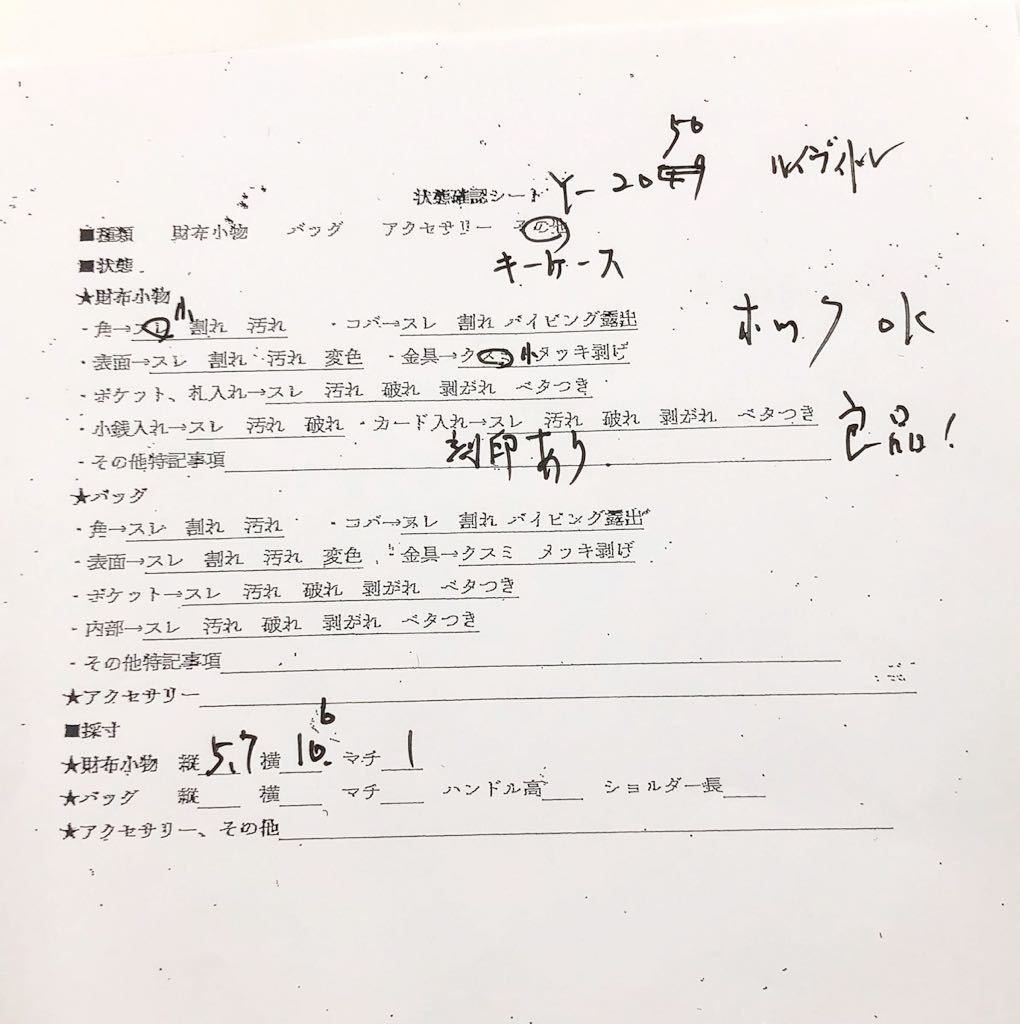 50
状態確認シート Y-20 ルイヴィトン
■種類 財布小物 バッグ アクセサリー その他
■状態 キーケース
★財布小物
・角→スレ小 割れ 汚れ ・コバ→スレ 割れ パイピング露出 ホック OK
・表面→スレ 割れ 汚れ 変色 ・金具→クスミ小 メッキ剥げ
・ポケット、札入れ→スレ 汚れ 破れ 剥がれ ベタつき
・小銭入れ→スレ 汚れ 破れ ・カード入れ→スレ 汚れ 破れ 剥がれ ベタつき 良品!
・その他特記事項 刻印あり.
★バッグ
・角→スレ 割れ 汚れ ・コバ→スレ 割れ パイピング露出
・表面→スレ 割れ 汚れ 変色 ・金具→クスミ メッキ剥げ
・ポケット→スレ 汚れ 破れ 剥がれ ベタつき
・内部→スレ 汚れ 破れ 剥がれ ベタつき
・その他特記事項
★アクセサリー
■採寸
★財布小物 縦5.7 横10.6 マチ1
★バッグ 縦 横 マチ ハンドル高 ショルダー長
★アクセサリー、その他